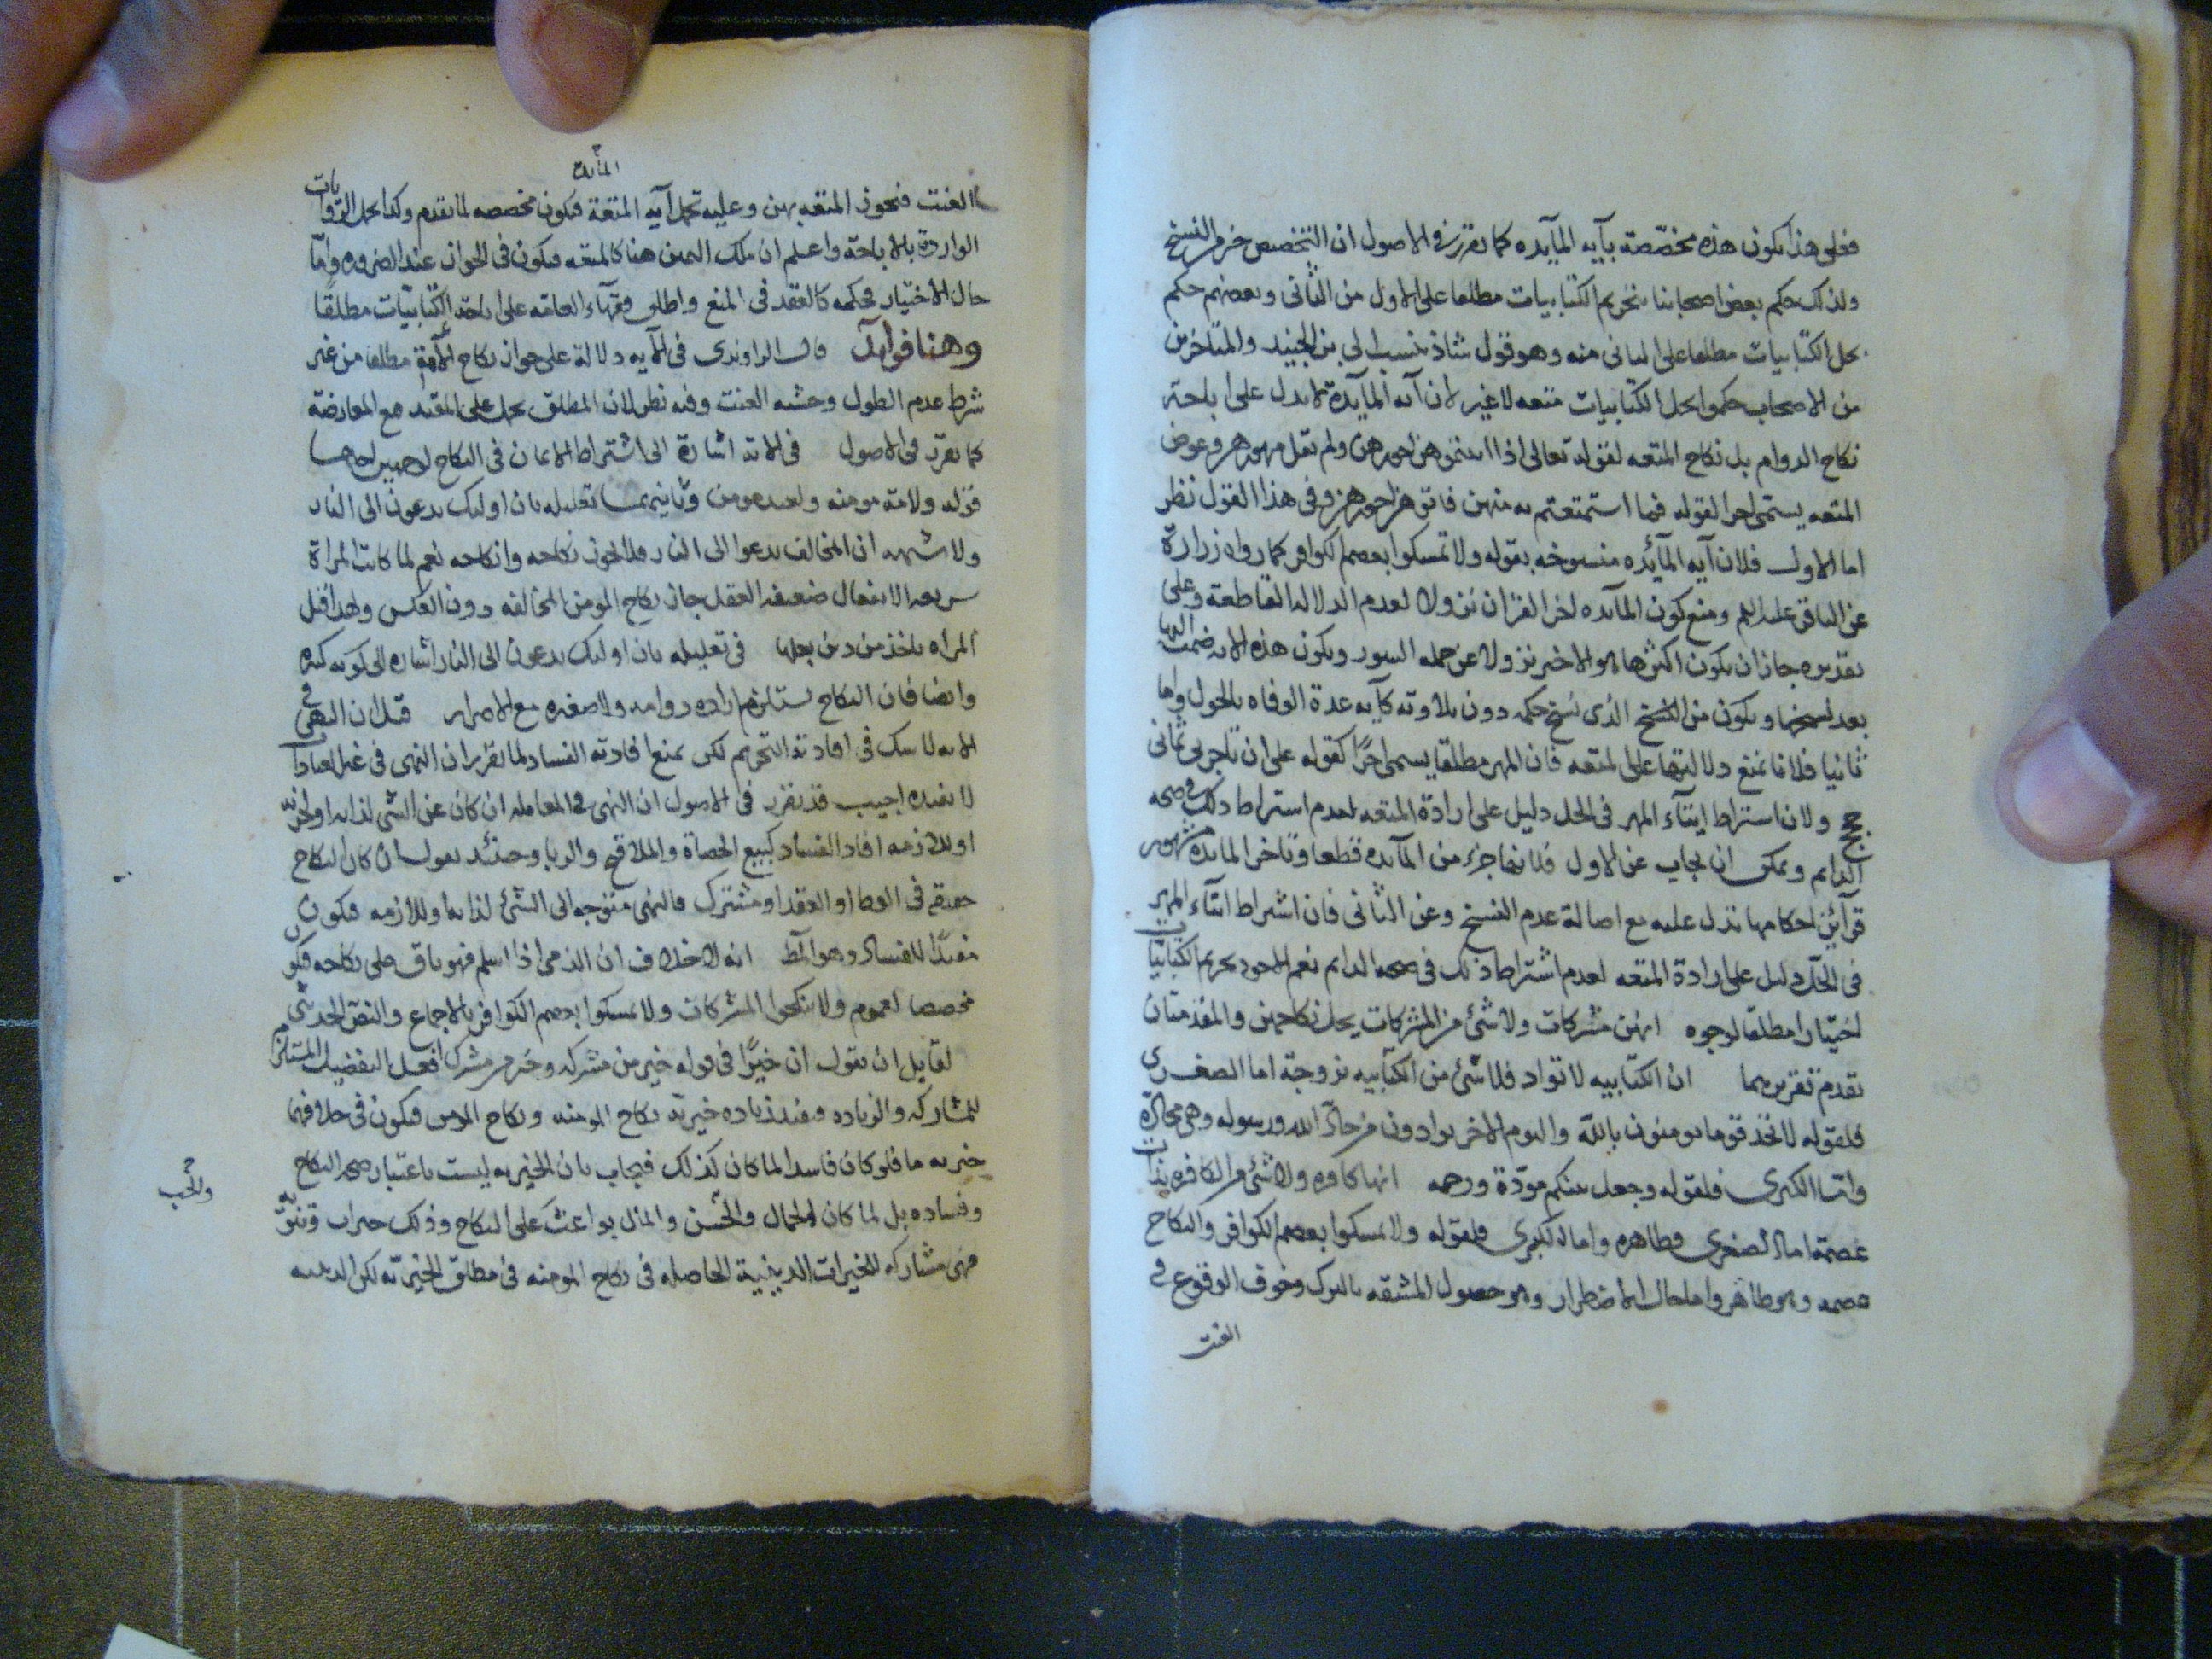 فعلى هذا يكون هذه مخصّصة بآيه المآيده كما تقرر فى الاصول ان التخصيص خير من النسخ
ولذلك حكم بعض اصحابنا بتحريم الكتابيات مطلقا على الاول من الثانى وبعضهم حكم
بحل الكتابيات مطلقا على الثانى منه وهو قول شاذ ينسب الى بن الجنيد والمتاخرين
من الاصحاب حكموا بحل الكتابيات متعه لا غير لان آيه المآيدة لا تدل على اباحة
نكاح الدوام بل نكاح المتعه لقوله تعالى اذا اتيتموهن اجورهن ولم يقل مهورهن وعوض
المتعه يسمى اجرا لقوله فما استمتعتم به منهن فاتوهن اجورهن وفى هذا القول نظر
اما الاول فلان آيه المآئده منسوخه بقوله ولا تمسكوا بعصم الكوافر كما رواه زرارة
عن الباقر عليه السلم ومنع كون المآيده اخر القران نزولا لعدم الدلاله القاطعة وعلى
تقديره جاز ان يكون اكثرها هو الاخير نزولا عن جمله السور ويكون هذه الايه ضمت اليها
بعد نسخها ويكون من النسخ الذى نسخ حكمه دون تلاوته كآيه عدة الوفاه بالحول واما
ثانيا فلانا نمنع دلالتها على المتعه فان المهر مطلقا يسمى اجرًا كقوله على ان تاجرنى ثمانى
حجج ولان اشتراط ايتآء المهر فى الحل دليل على ارادة المتعه لعدم اشتراط ذلك فى صحه
الدايم ويمكن ان يجاب عن الاول فلانها جزء من المآيده قطعا وتاخر المايده مشهور
قرآئن احكامها تدل عليه مع اصالة عدم النسخ وعن الثانى فان اشتراط ايتآء المهر
فى الحل دليل على ارادة المتعه لعدم اشتراط ذلك فى صحه الدايم نعم الاجود تحريم الكتابيات
اختيارا مطلقا لوجوه انهن مشركات ولا شئ من المشركات يحل نكاحهن والمقدمتان
تقدم تقريرهما ان الكتابيه لا تواد فلا شئ من الكتابيه بزوجة اما الصغرى
فلقوله لا تجد قوما يومنون بالله واليوم الاخر يوادون من حآد الله ورسوله وهى محادّة
وامّا الكبرى فلقوله وجعل بينكم مودّة ورحمه انها كافره ولا شئ من الكافره بذات
عصمة اما الصغرى فظاهره واما الكبرى فلقوله ولا تمسكوا بعصم الكوافر والنكاح
عصمه وهو ظاهر واما حال الاضطرار وهو حصول المشقه بالترك وخوف الوقوع فى
العنت
المائده
العنت فيجوز المتعه بهن وعليه تحمل آيه المتعة فيكون مخصصه لما تقدم وكذا يحمل الروايات
الواردة بالاباحة واعلم ان ملك اليمين هنا كالمتعه فيكون فى الجواز عند الضروره وامّا
حال الاختيار فحكمه كالعقد فى المنع واطلق فقهآء العامّه على اباحة الكتابيّات مطلقًا
وهنا فوائد قال الراوندى فى الآيه دلالة على جواز نكاح الأمة مطلقا من غير
شرط عدم الطول وخشيه العنت وفيه نظر لان المطلق يحمل على المقيد مع المعارضة
كما تقرر فى الاصول فى الايه اشارة الى اشتراط الايمان فى النكاح لوجهين احدهما
قوله ولامة مومنه ولعبد مومن وثانيهما تعليله بان اولئك يدعون الى النار
ولا شبهه ان المخالف يدعوا الى النار فلا يجوز نكاحه وانكاحه نعم لما كانت المراة
سريعه الانفعال ضعيفه العقل جاز نكاح المومن المخالفه دون العكس ولهذا قيل
المراه تاخذ من دين بعلها فى تعليله بان اولئك يدعون الى النار اشاره الى كونه كبيره
وايضا فان النكاح يستلزم اراده دوامه ولا صغيره مع الاصرار قيل ان النهى فى
الايه لا شك فى افادته التحريم لكن نمنع افادته الفساد لما تقرر ان النهى فى غير العبادات
لا يفيده اجيب قد تقرر فى الاصول ان النهى فى المعامله ان كان عن الشى لذاته او لجزئه
او للازمه افاد الفساد كبيع الحصاة والملاقح والربا وحينئذ نقول ان كان النكاح
حقيقة فى الوطا او العقد او مشترك فالنهى متوجه الى الشئ لذاته او للازمه فيكون
مفيدًا للفساد وهو المط انه لا خلاف ان الذمى اذا اسلم فهو باق على نكاحه فيكون
مخصصا لعموم ولا تنكحوا المشركات ولا تمسكوا بعصم الكوافر بالاجماع والنص الحديثى
لقايل ان يقول ان خيرًا فى قوله خير من مشركه وخير من مشرك افعل التفضيل المستلزم
للمشاركه والزياده فيفيد زياده خيرية نكاح المومنه ونكاح المومن فيكون فى خلافهما
خيريه ما فلو كان فاسدا لما كان كذلك فيجاب بان الخيريه ليست باعتبار صحه النكاح
وفساده بل لما كان الجمال والحسن والمال بواعث على النكاح وذلك خيرات دنيويّه
فهى مشاركه للخيرات الدينية الحاصله فى نكاح المومنه فى مطلق الخيريّه لكن الدينيه